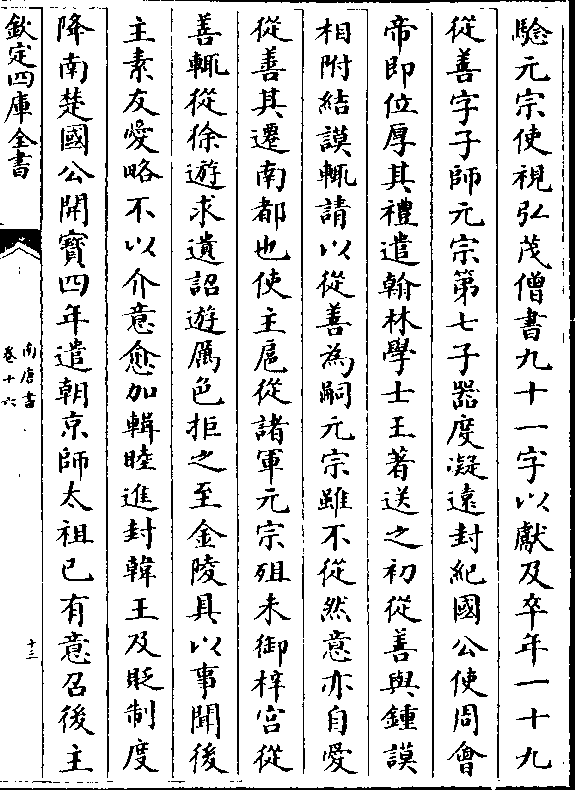 驗元宗使視弘茂僧書九十一字以獻及卒年一十九
從善字子師元宗第七子器度凝遠封紀國公使周會
帝即位厚其禮遣翰林學士王著送之初從善與鍾謨
相附結謨輒請以從善為嗣元宗雖不從然意亦自愛
從善其遷南都也使主扈從諸軍元宗殂未御梓宮從
善輒從徐遊求遺詔遊厲色拒之至金陵具以事聞後
主素友愛略不以介意愈加輯睦進封韓王及貶制度
降南楚國公開寶四年遣朝京師太祖已有意召後主
欽定四庫全書
南唐書
卷十六
十三